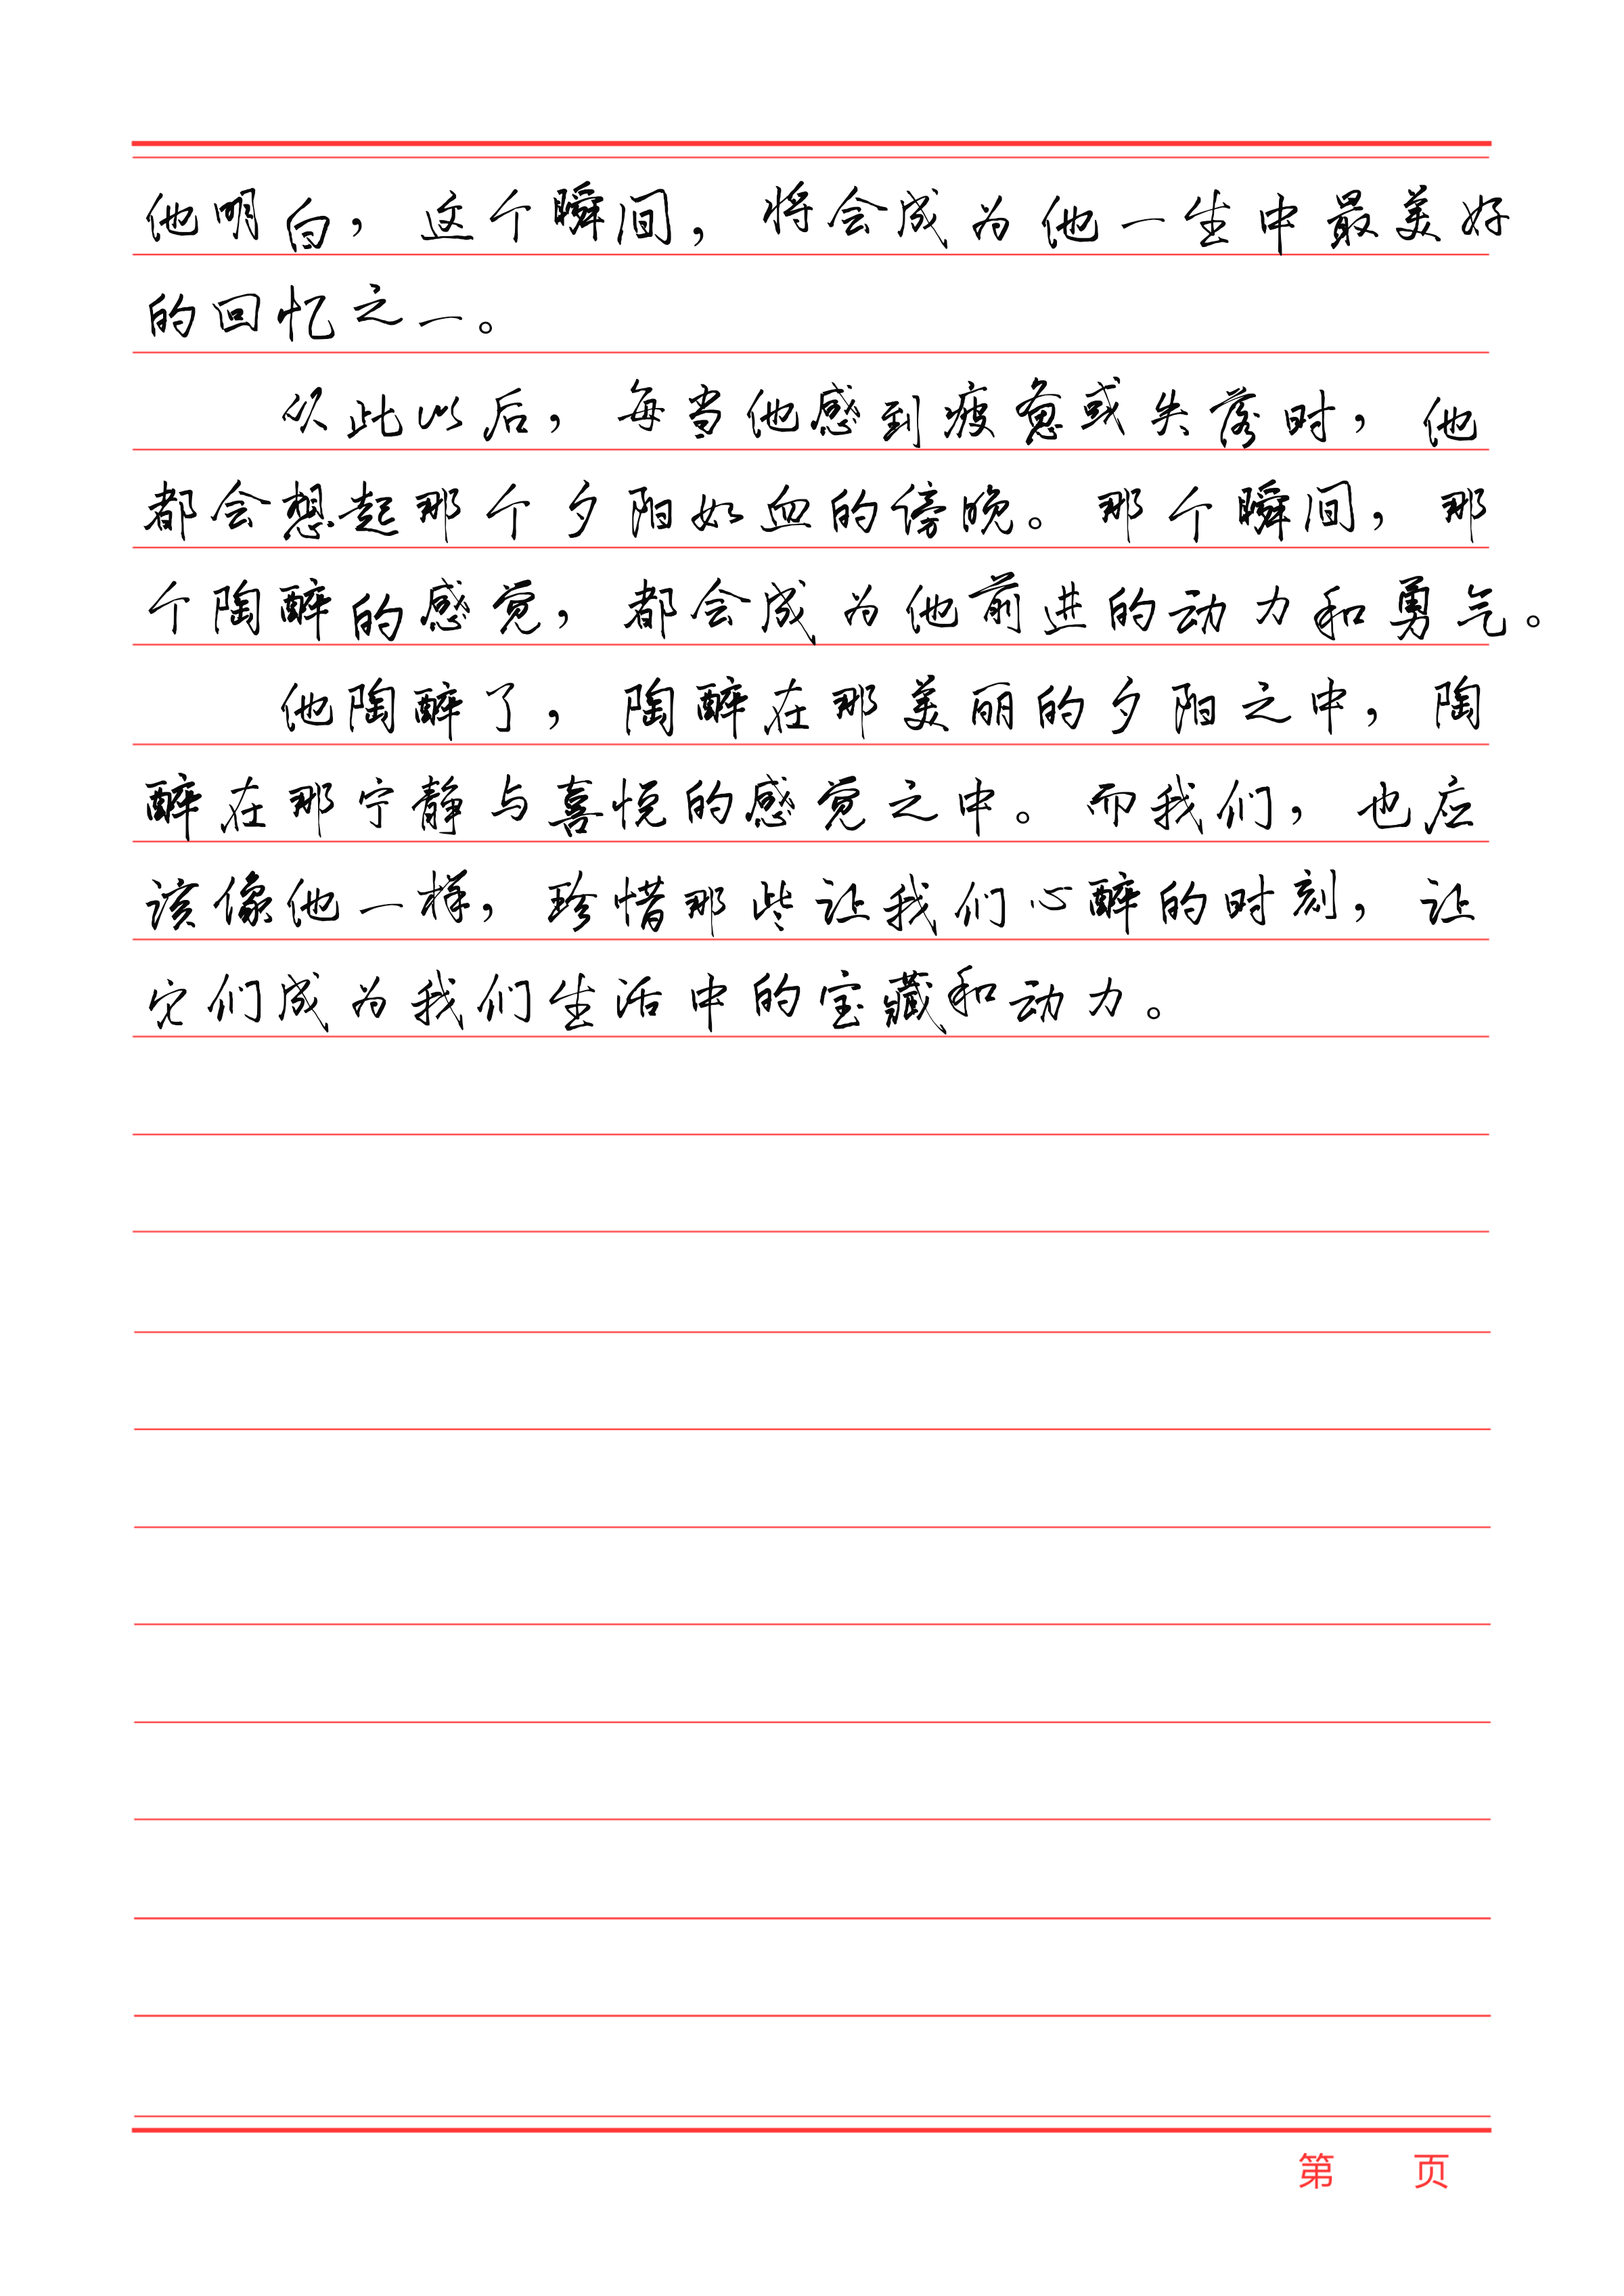 他明白，这个瞬间，将会成为他一生中最美好
的回忆之一。
从此以后，每当他感到疲惫或失落时，他
都会想起那个夕阳如血的傍晚。那个瞬间，那
个陶醉的感觉，都会成为他前进的动力和勇气。
他陶醉了，陶醉在那美丽的夕阳之中，陶
醉在那宁静与喜悦的感觉之中。而我们，也应
该像他一样，珍惜那些让我们心醉的时刻，让
它们成为我们生活中的宝藏和动力。
第 页